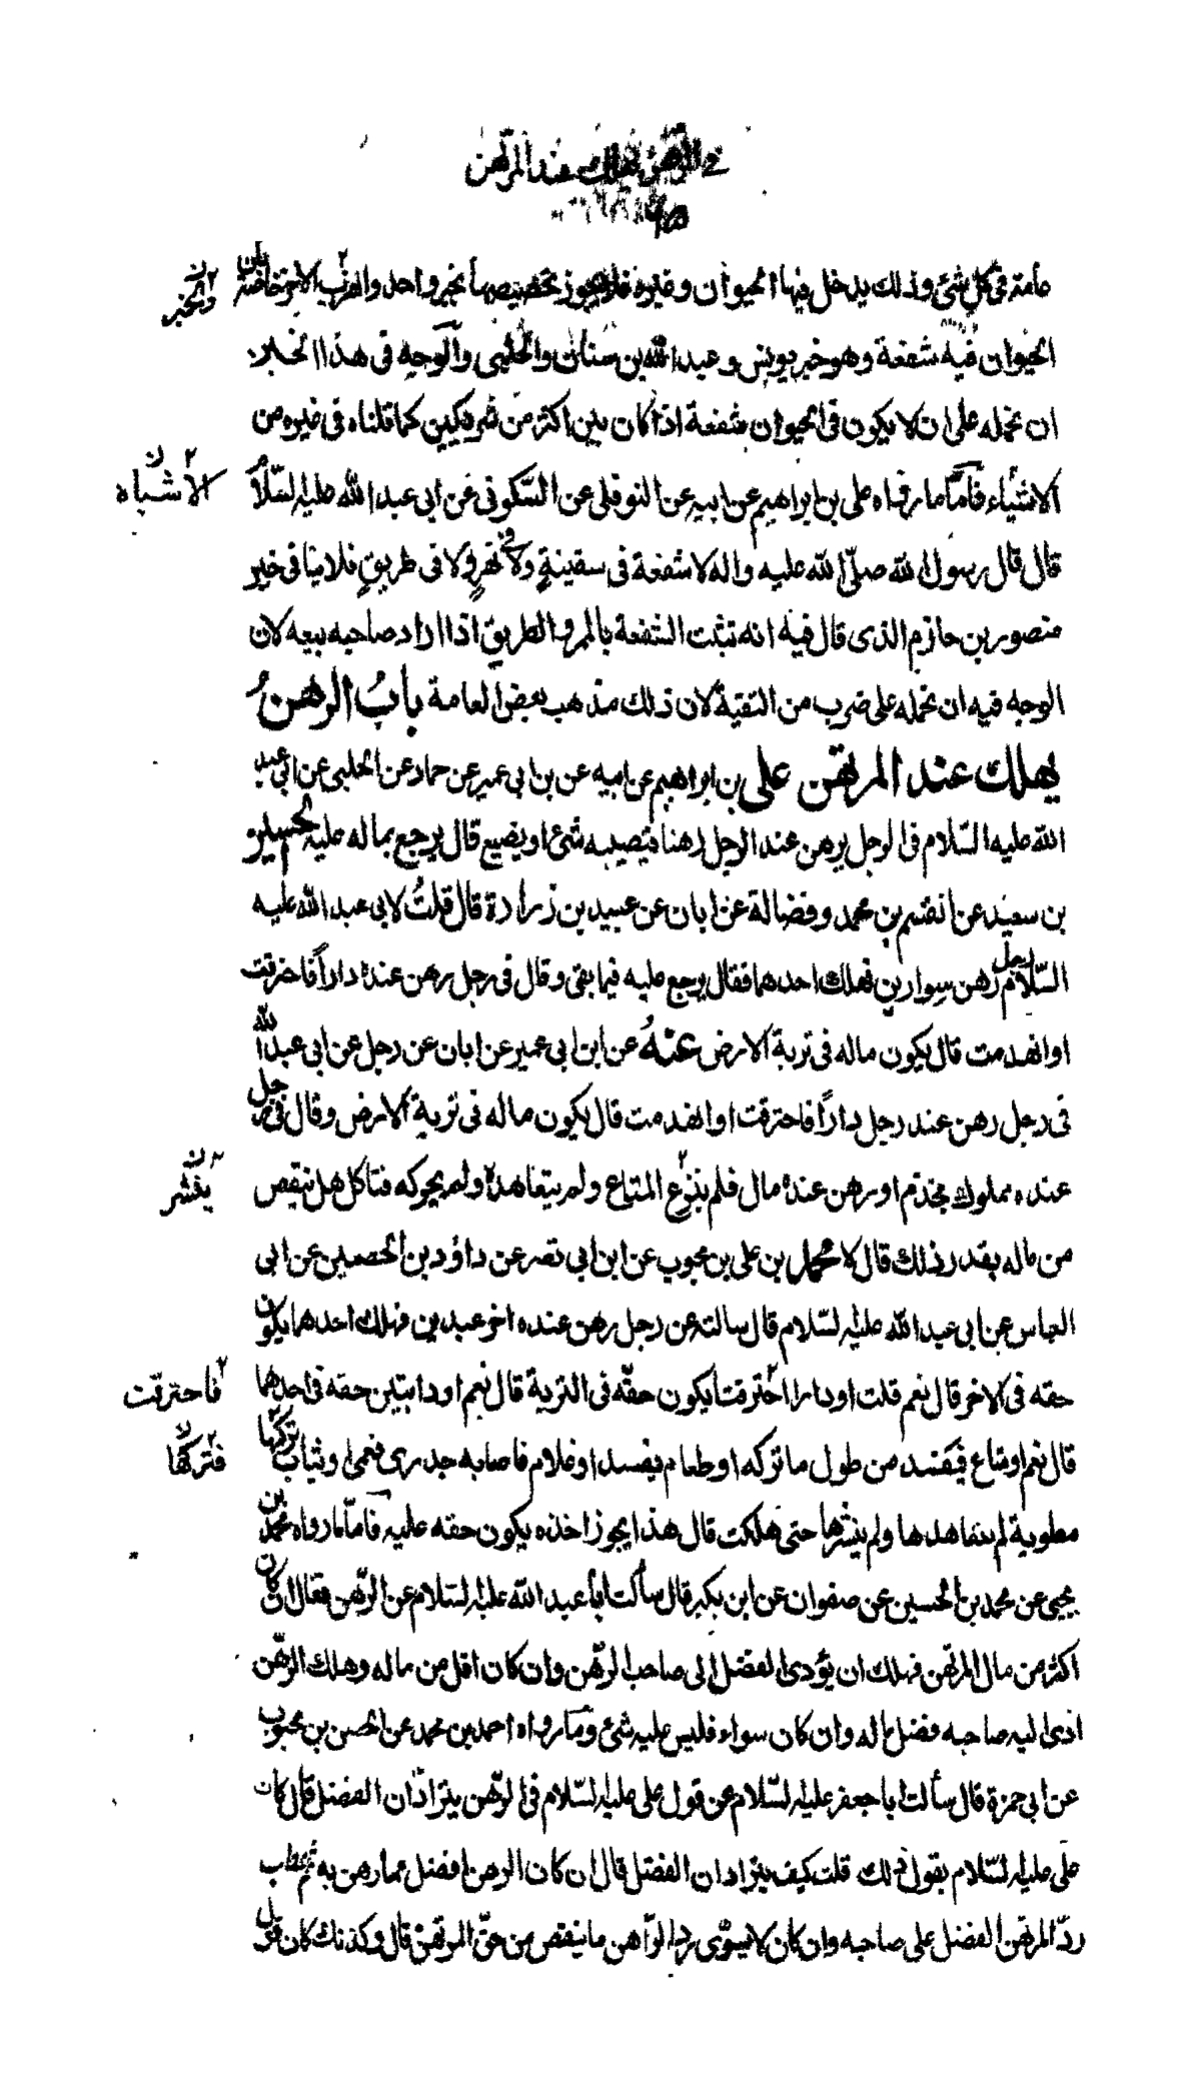 في الرهن يهلك عند المرتهن
عامة في كل شئ وذلك يدخل فيها الحيوان وغيره فلا يجوز تخصيصها بخبر واحد والضرب الآخر خاصة بان
والخبر
الحيوان فيه شفعة وهو خبر يونس وعبد الله بن سنان والحلبى والوجه في هذا الخبر
ان نحمله على ان لا يكون في الحيوان شفعة اذا كان بين اكثر من شريكين كما قلناه في غيره من
الاشياء فأما ما رواه على بن ابراهيم عن ابيه عن النوفلى عن السّكونى عن ابى عبد الله عليه السّلام
الأشباه
قال قال رسول الله صلّى الله عليه واله لا شفعة فى سفينةٍ ولا فى نهرٍ ولا فى طريقٍ فلا ينافى خبر
منصور بن حازم الذى قال فيه انه تثبت الشفعة بالممر والطريق اذا اراد صاحبه بيعه لان
الوجه فيه ان نحمله على ضرب من التقية لان ذلك مذهب بعض العامة بابُ الرهنُ
يهلك عند المرتهن على بن ابراهيم عن ابيه عن بن ابى عمير عن حماد عن الحلبى عن ابى عبد
الله عليه السّلام فى الرجل يرهن عند الرجل رهنا فيصيبه شئ او يضيع قال يرجع بماله عليه الحسين
بن سعيد عن القسم بن محمد وفضالة عن ابان عن عبيد بن زرارة قال قلتُ لابى عبد الله عليه
السّلام رجل رهن سوارين فهلك احدهما فقال يرجع عليه فيما بقى وقال فى رجل رهن عنده داراً فاحترقت
او انهدمت قال يكون ماله فى تربة الارض عنهُ عن ابن ابى عمير عن ابان عن رجل عن ابى عبد الله
فى رجل رهن عند رجل داراً فاحترقت او انهدمت قال يكون ماله فى تربة الارض وقال فى رجل
عنده مملوك فجذم او رهن عنده مال فلم ينزع المتاع ولم يتعاهده ولم يحركه فتاكل هل ينقص
ينشر
من ماله بقدر ذلك قال لا محمد بن على بن محبوب عن ابن ابى نصر عن داؤد بن الحصين عن ابى
العباس عن ابى عبد الله عليه السّلام قال سالته عن رجل رهن عنده اخر عبدين فهلك احدهما يكون
حقه فى الاخر قال نعم قلت او دارا احترقت ايكون حقّه فى التربة قال نعم او دابتين حقه فى احدهما
فاحترقت
قال نعم او متاع فيفسد من طول ما تركه او طعام يفسد او غلام فاصابه جدرى فعمى او ثياب تركها
فتركها
مطوية لم يتعاهدها ولم ينشرها حتى هلكت قال هذا يجوز اخذه يكون حقه عليه فامّا ما رواه محمد بن
يحيى عن محمد بن الحسين عن صفوان عن ابن بكير قال سألت ابا عبد الله عليه السّلام عن الرّهن فقال ان كان
اكثر من مال المرتهن فهلك ان يؤدى الفضل الى صاحب الرّهن وان كان اقل من ماله وهلك الرّهن
ادى اليه صاحبه فضل ماله وان كان سواء فليس عليه شئ وما رواه احمد بن محمد عن الحسن بن محبوب
عن ابى حمزة قال سألت ابا جعفر عليه السّلام عن قول على عليه السّلام فى الرّهن يترادّان الفضل قال كان
على عليه السّلام يقول ذلك قلت كيف يترادان الفضل قال ان كان الرهن افضل مما رهن به ثم عطب
ردّ المرتهن الفضل على صاحبه وان كان لا يسوى رد الرّاهن ما ينقص من حقّ المرتهن قال وكذلك كان قول